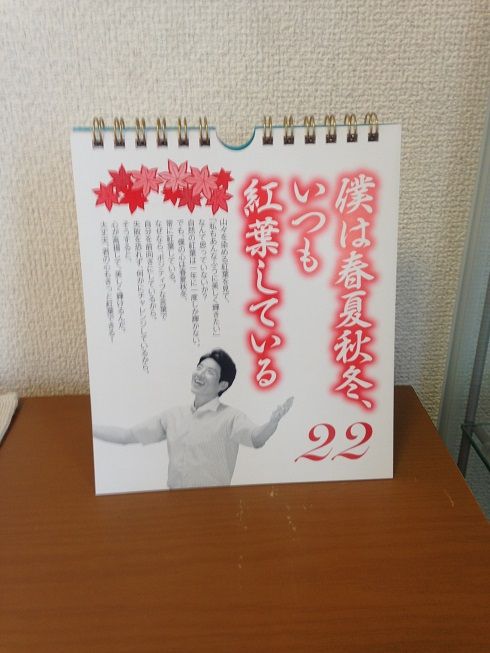 僕は春夏秋冬、
いつも
紅葉している
22
山々を染める紅葉を見て、
「私もあんなふうに美しく輝きたい」
なんて思っていないか？
自然の紅葉は一年に一度しか輝かない。
でも、僕の心は春夏秋冬、
常に紅葉している。
なぜなら、ポジティブな言葉で
自分を前向きにしているから。
失敗を恐れず、何かにチャレンジしているから。
そうすると、
心が高揚して、美しく輝けるんだ。
大丈夫、君の心もきっと紅葉できる！